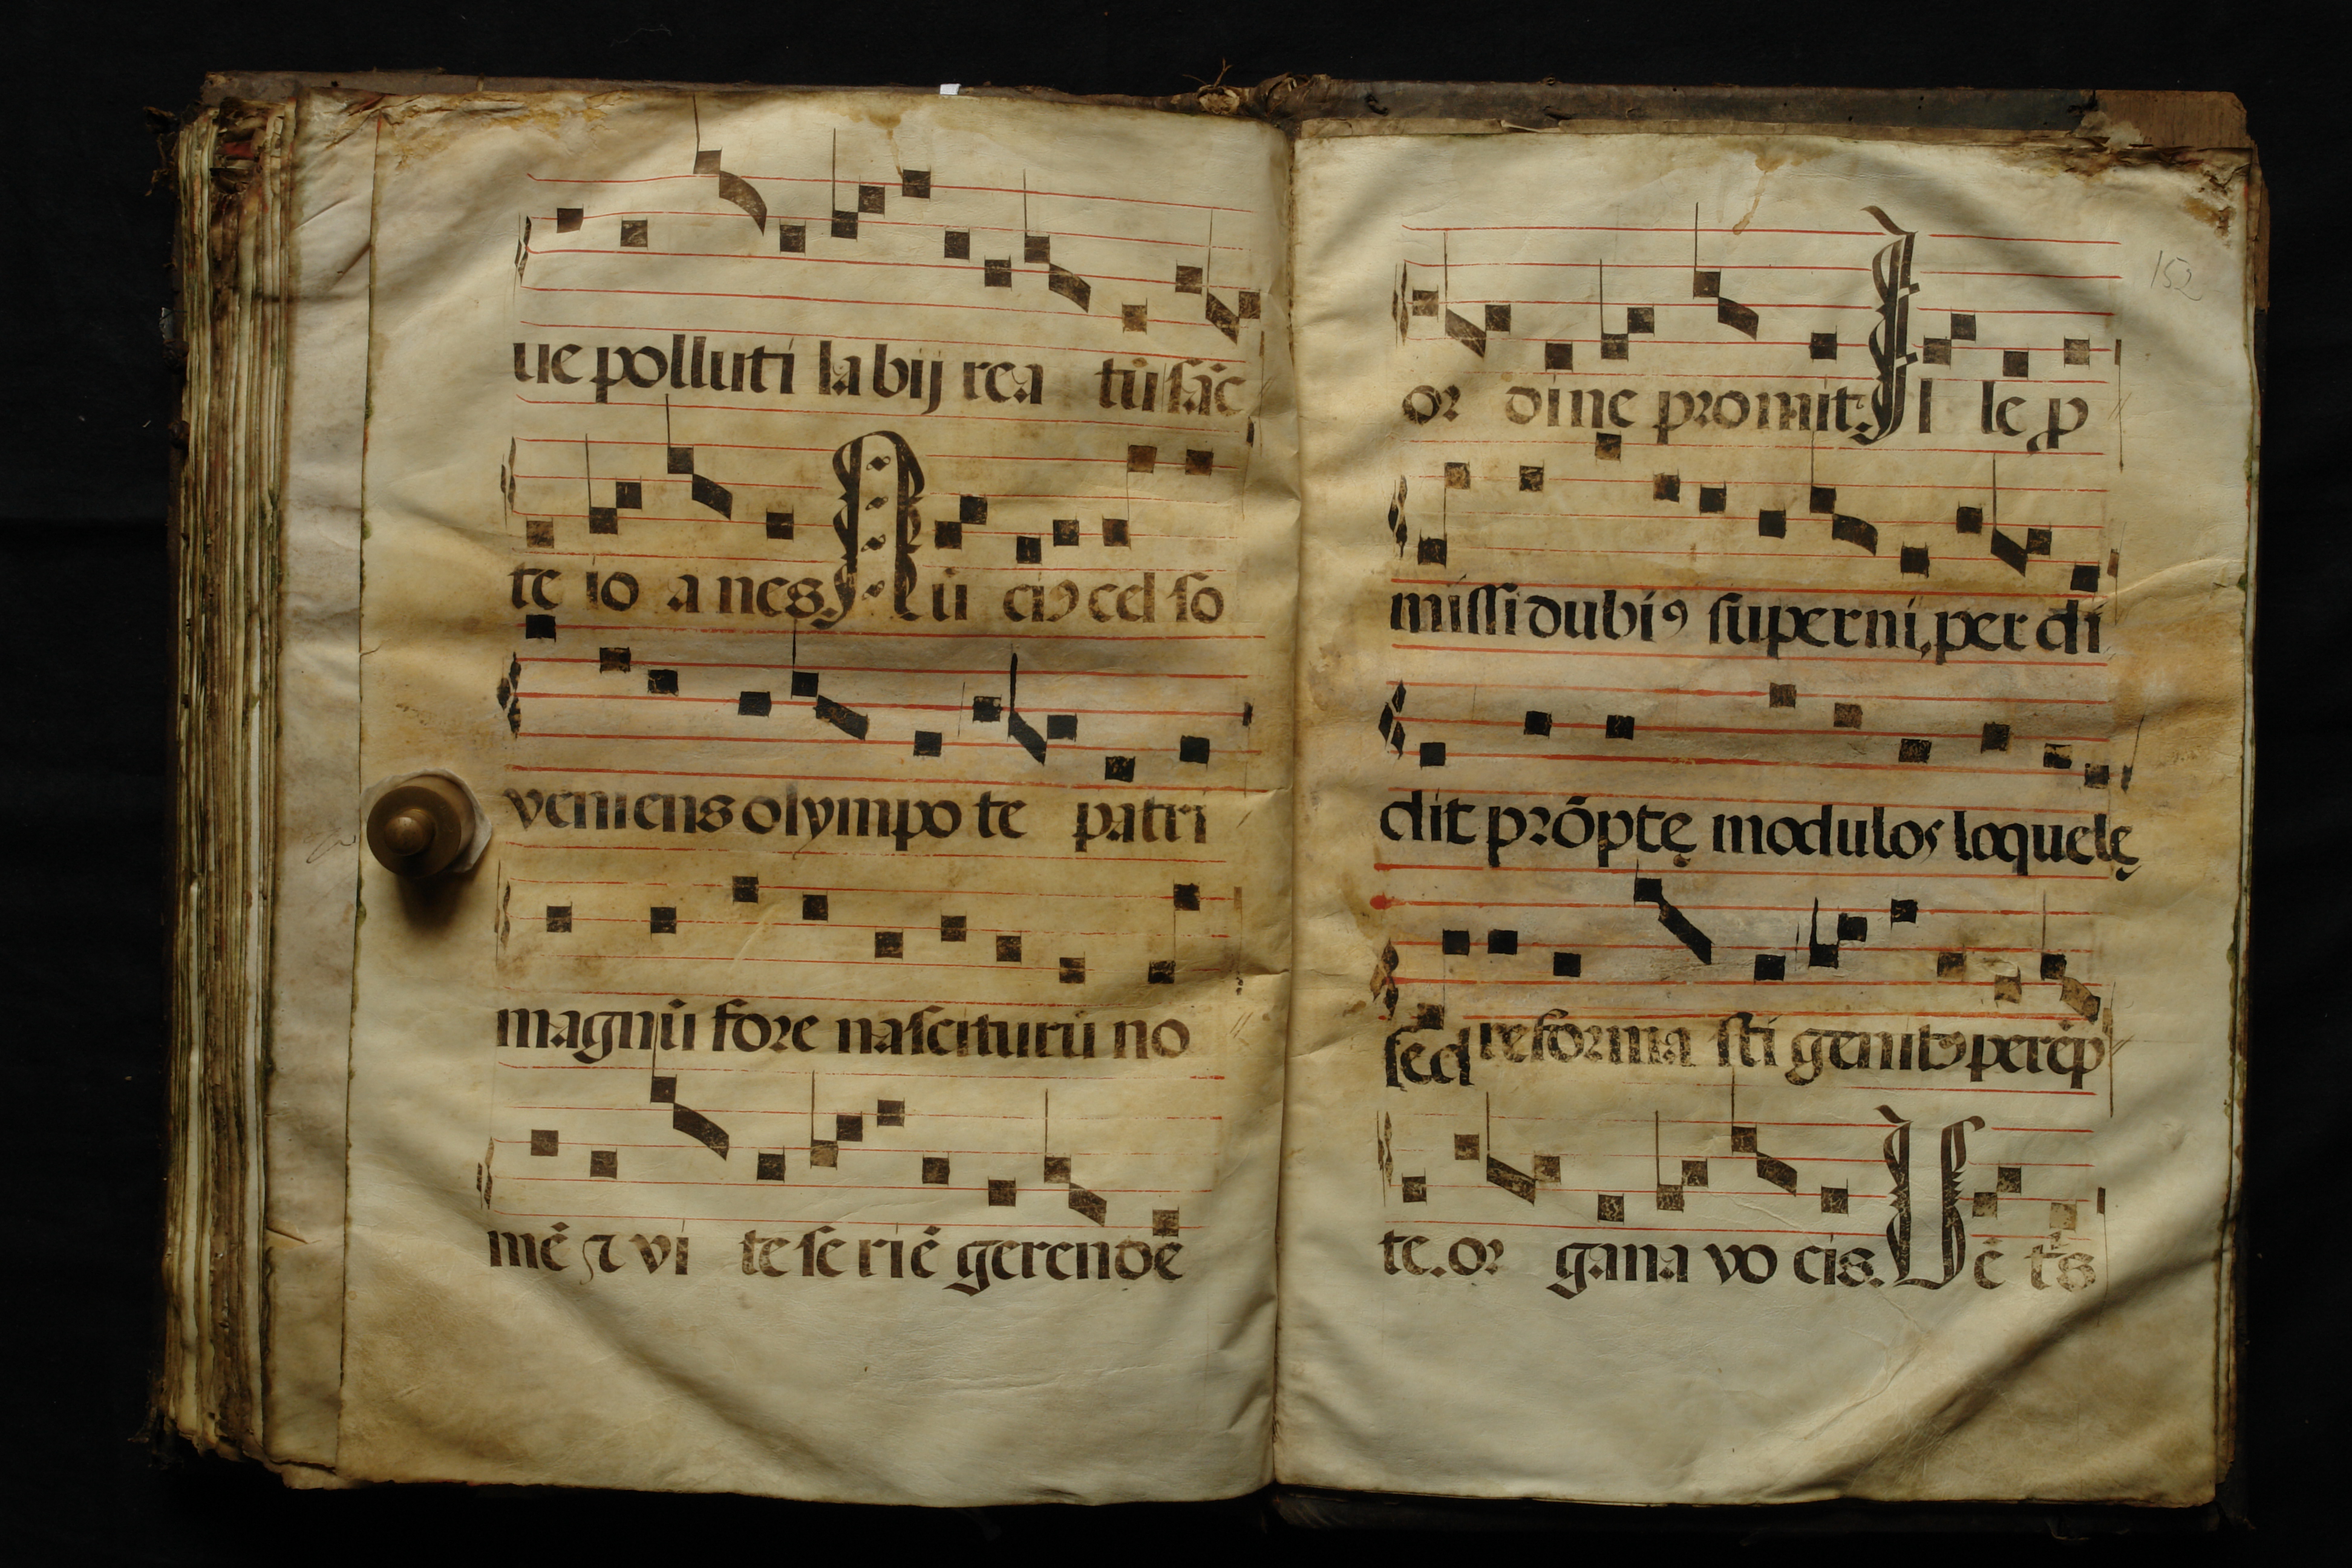 ue polluti la bij rea tū sāc
te io a nes. Nū ciꝰ cel so
veniens olympo te patri
magnū fore nasciturū no
mē ⁊ vi te se riē gerendē
152
or dine promit. Il le ꝓ
missi dubiꝰ superni, per di
dit prōptę modulos loquelę
sed reforma sti genitꝰ perēp
te. or gana vo cis. Vē tꝰs